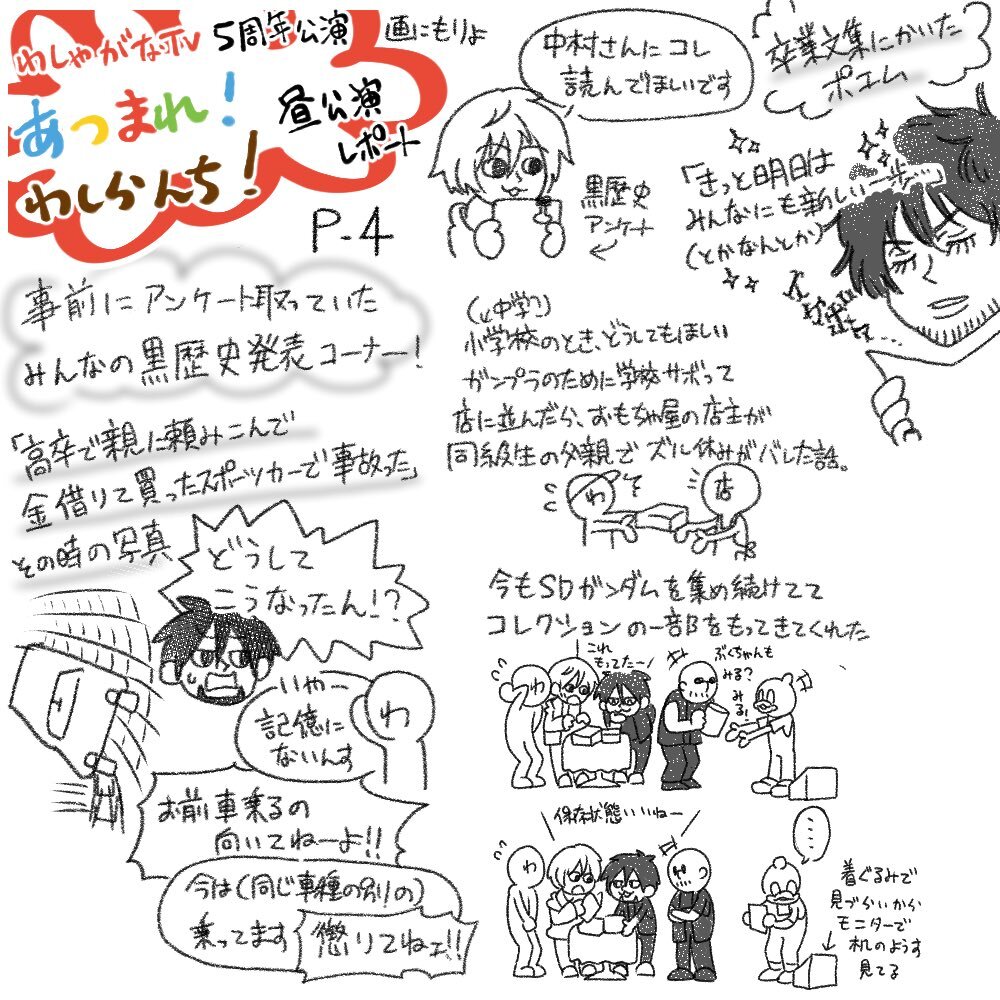 わしゃがなTV 5周年公演 画にもりよ
あつまれ！
わしらんち！
昼公演
レポート
P-4
事前にアンケート取っていた
みんなの黒歴史発表コーナー！
「高卒で親に頼みこんで
金借りて買ったスポーツカーで事故った」
その時の写真
どうして
こうなったん!?
いやー
記憶に
ないんす
わ
お前車乗るの
向いてねーよ!!
今は(同じ車種の別の)
乗ってます
懲りてねェ!!
中村さんにコレ
読んでほしいです
黒歴史
アンケート
卒業文集にかいた
ポエム
「きっと明日は
みんなにも新しい一歩…
(とかなんとか)
イケボ
(中学？)
小学校のとき、どうしてもほしい
ガンプラのために学校サボって
店に並んだら、おもちゃ屋の店主が
同級生の父親でズル休みがバレた話。
わ
店
今もSDガンダムを集め続けてて
コレクションの一部をもってきてくれた
これ
もってたー！
ぶくちゃんも
みる？
みる！
わ
保存状態いいねー
わ
……
着ぐるみで
見づらいから
モニターで
机のようす
見てる